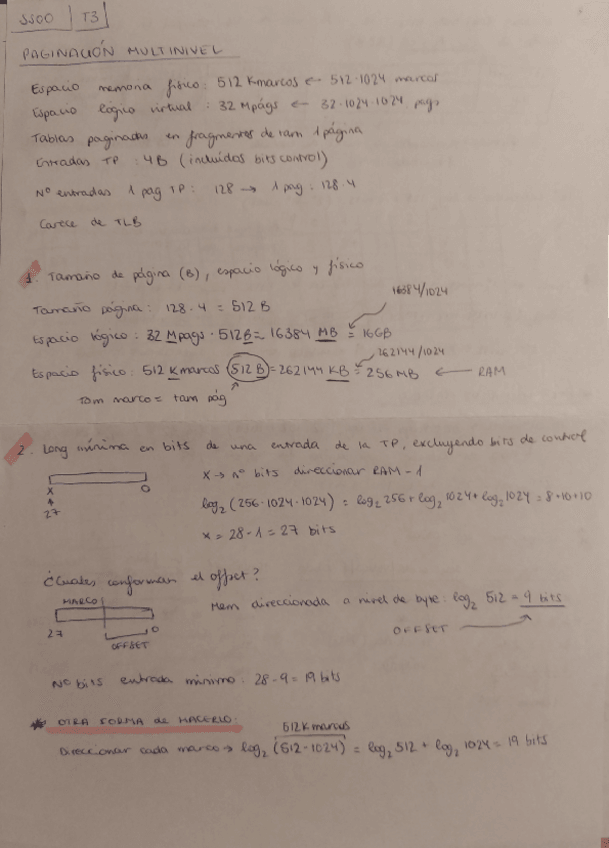 SSOO | T3
PAGINACIÓN MULTINIVEL
Espacio memoria físico: 512 Kmarcos ← 512·1024 marcos
Espacio lógico virtual: 32 Mpágs ← 32·1024·1024 pags
Tablas paginadas en fragmentos de tam 1 página
Entradas TP: 4B (incluidos bits control)
Nº entradas 1 pag TP: 128 → 1 pag: 128·4
Carece de TLB
1. Tamaño de página (B), espacio lógico y físico
Tamaño página: 128·4 = 512 B
16384/1024
Espacio lógico: 32 Mpags · 512B = 16384 MB = 16GB
262144/1024
Espacio físico: 512 Kmarcos 512 B = 262144 KB = 256 MB ← RAM
Tam marco = tam pág
2. Long mínima en bits de una entrada de la TP, excluyendo bits de control
X → nº bits direccionar RAM - 1
X 0
27
log2 (256·1024·1024) = log2 256 + log2 1024 + log2 1024 = 8+10+10
x = 28-1 = 27 bits
¿Cuales conforman el offset?
MARCO
Mem direccionada a nivel de byte: log2 512 = 9 bits
27 0
OFFSET
OFFSET
Nº bits entrada mínimo: 28-9 = 19 bits
* OTRA FORMA de HACERLO:
512K marcos
Direccionar cada marco → log2 (512·1024) = log2 512 + log2 1024 = 19 bits